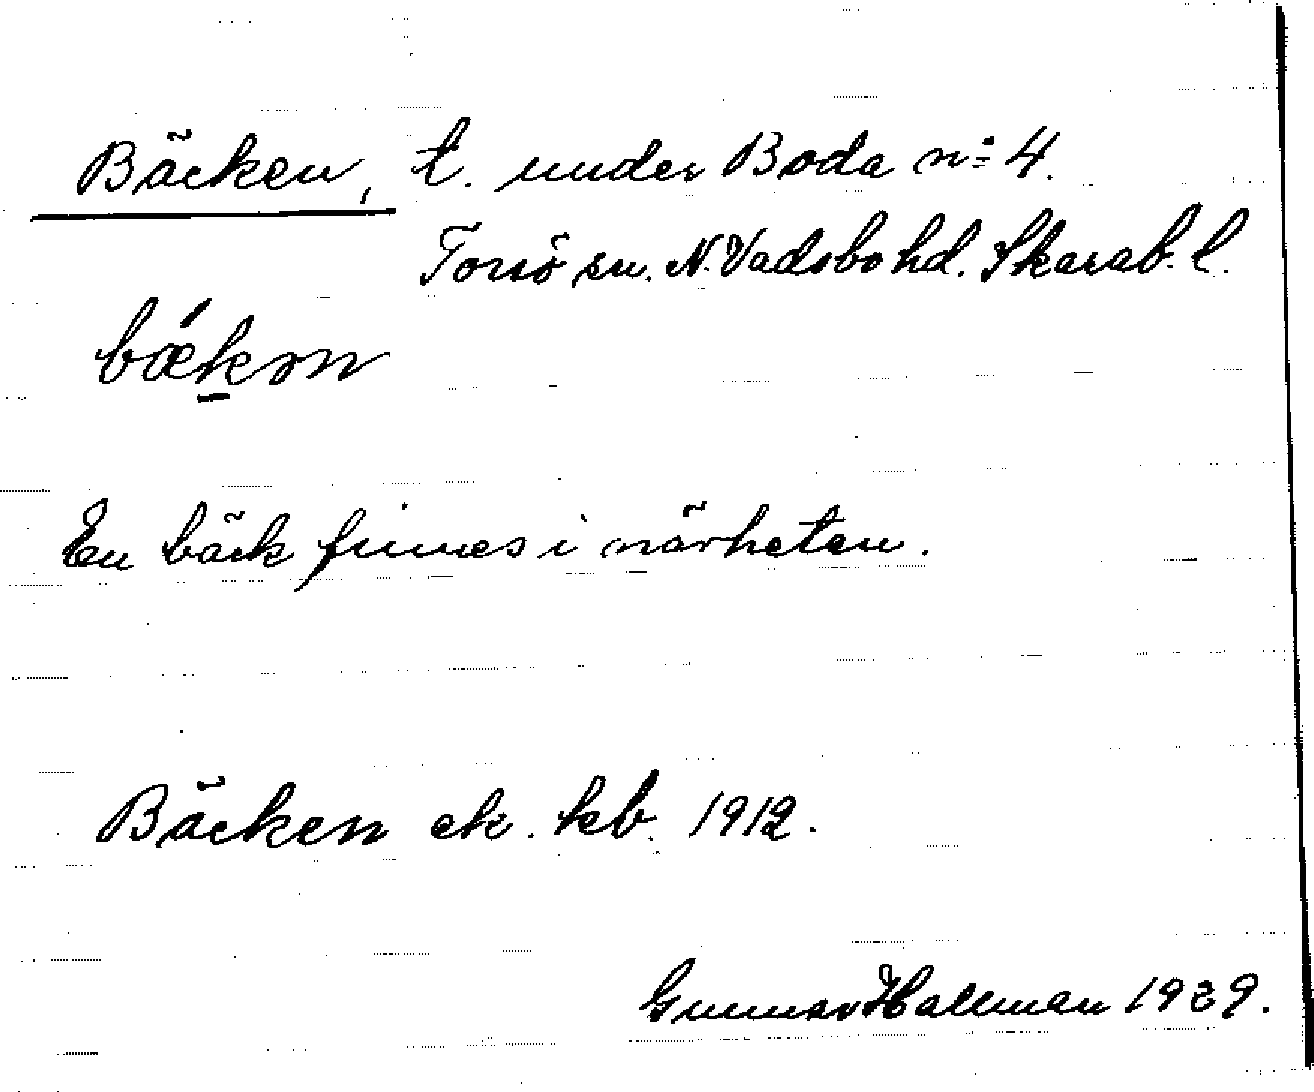 Bäcken, t. under Boda n:o 4.
Torsö sn. N. Vadsbo hd. Skarab. l.
bǽk̠ən
En bäck finnes i närheten.
Bäcken ek. kb. 1912.
Gunnar Hallman 1939.